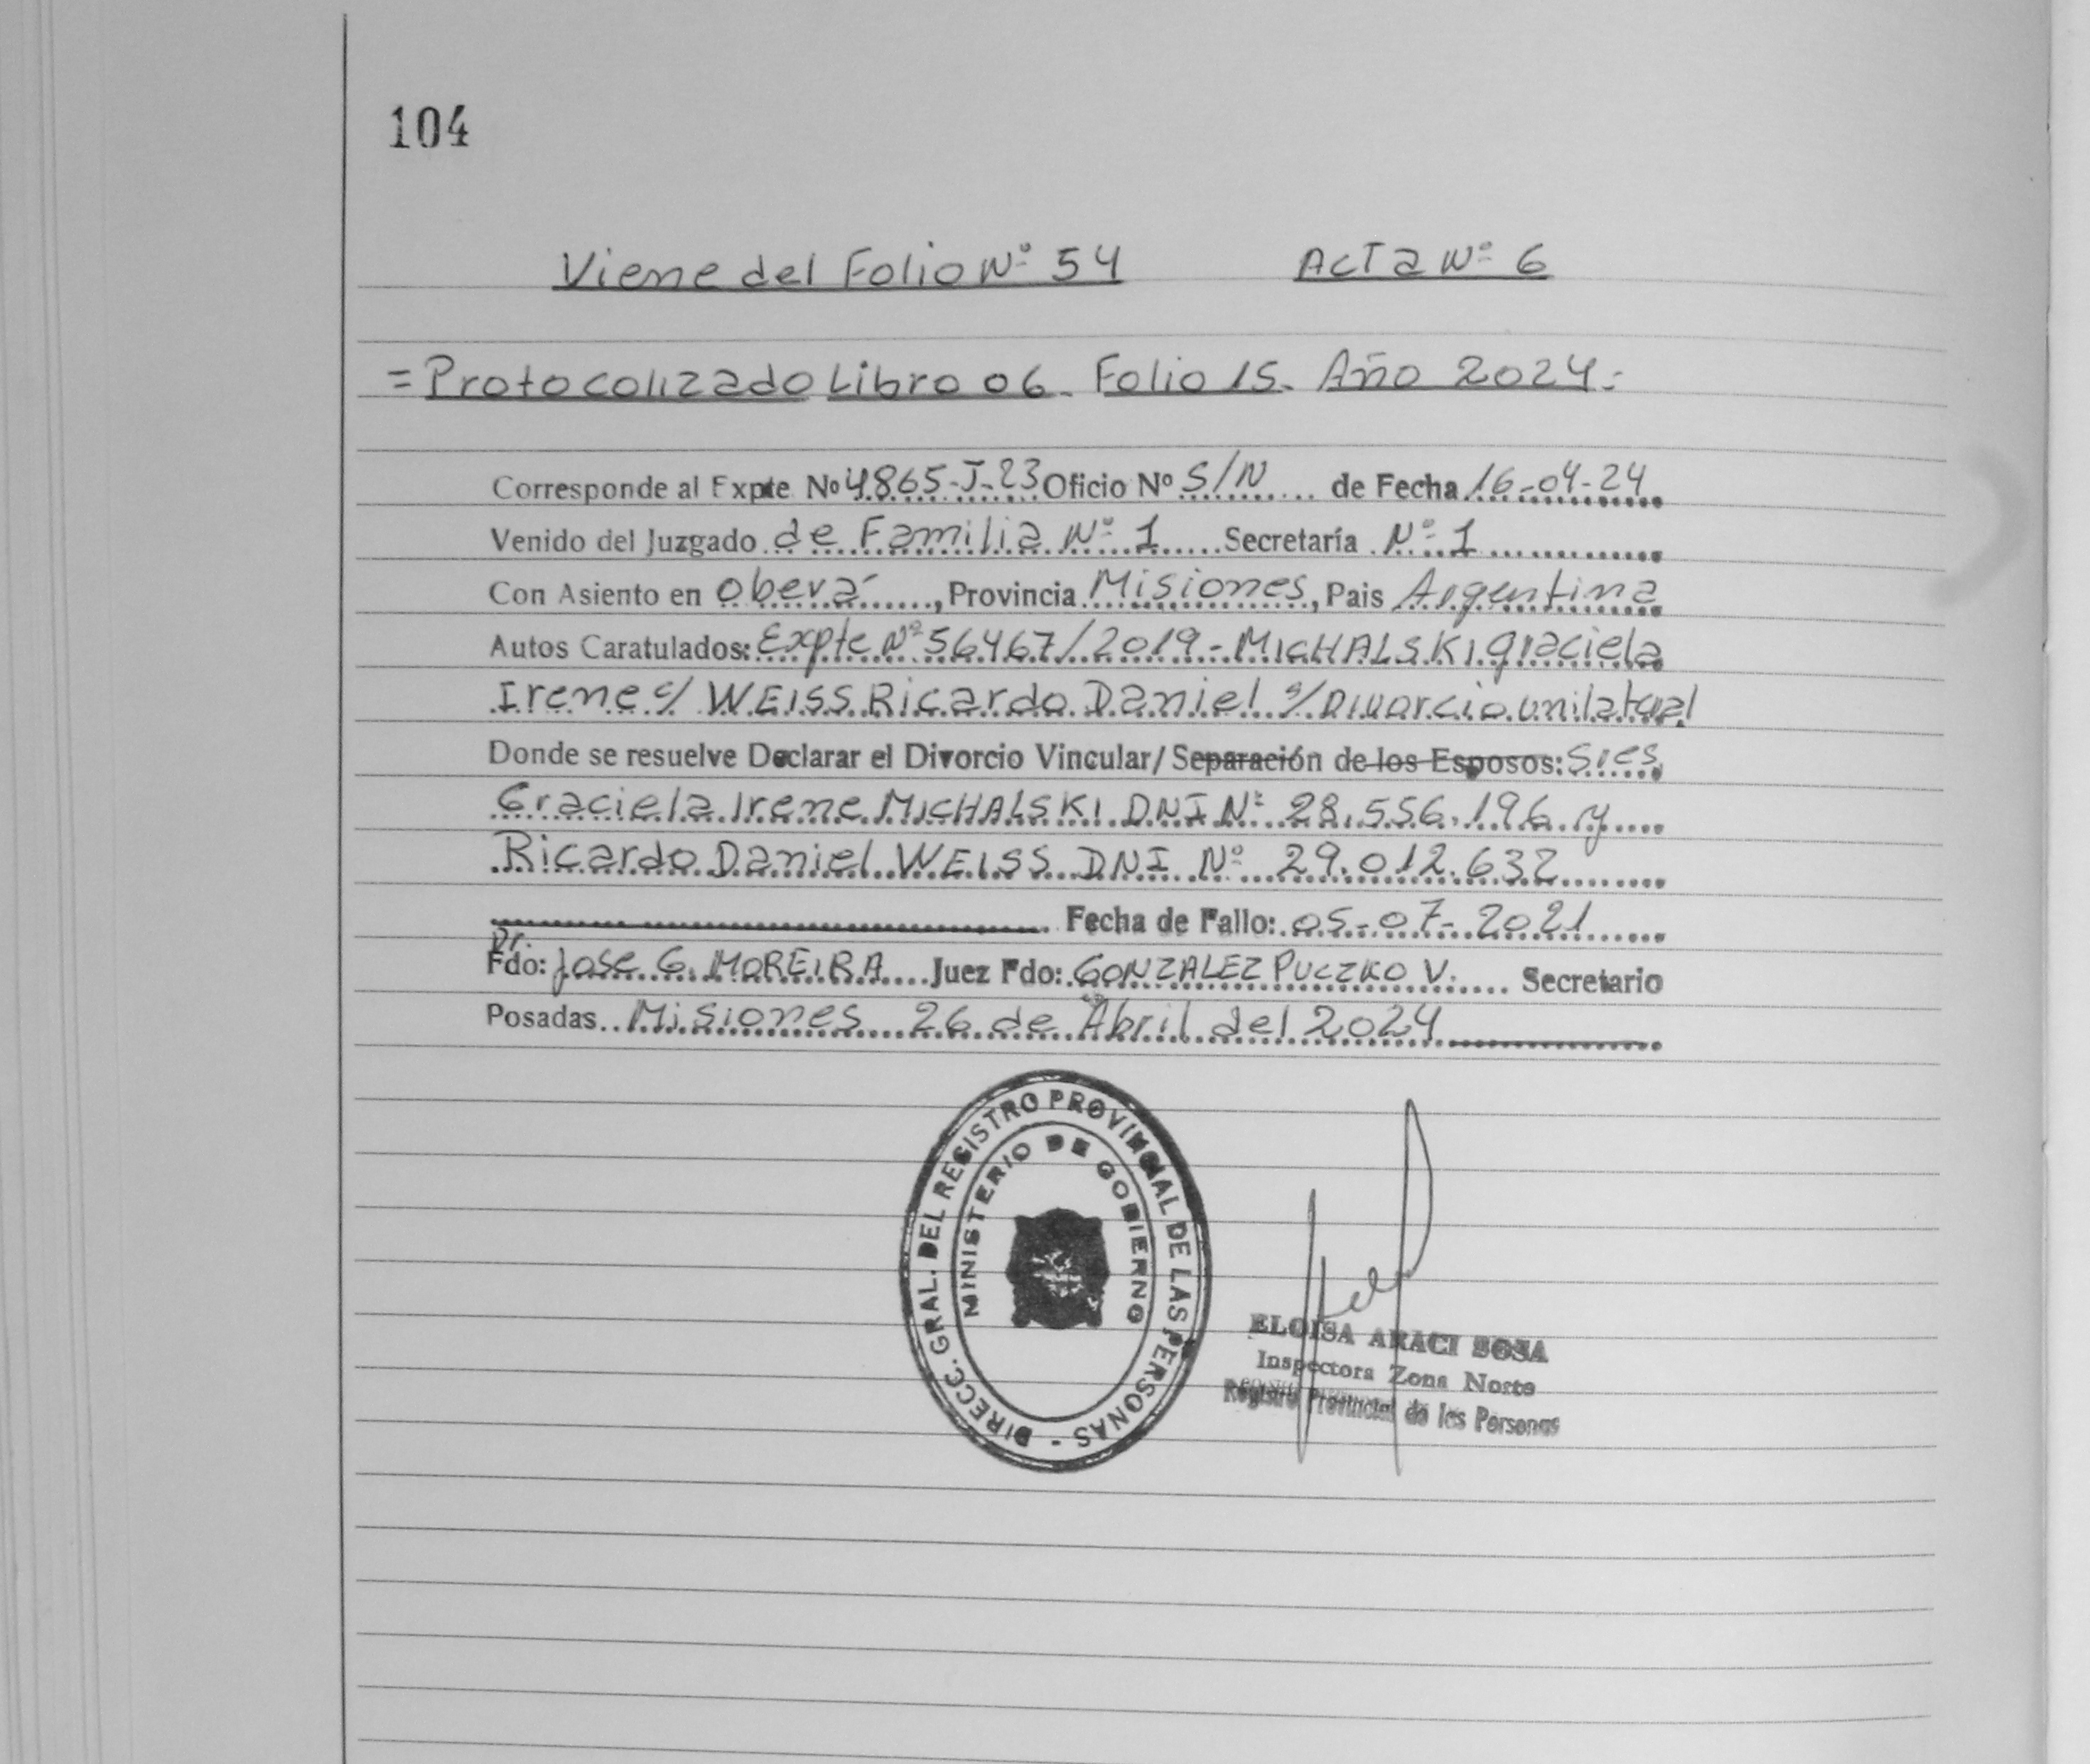 104
Viene del Folio Nº 54 Acta Nº 6
= Protocolizado Libro 06. Folio 15. Año 2024.-
Corresponde al Expte Nº 4865-J-23 Oficio Nº S/N de Fecha 16-04-24
Venido del Juzgado de Familia Nº 1 Secretaría Nº 1
Con Asiento en oberá, Provincia Misiones, Pais Argentina
Autos Caratulados: Expte Nº 56467/2019.- MICHALSKI graciela
Irene c/ WEISS Ricardo Daniel s/Divorcio unilateral
Donde se resuelve Declarar el Divorcio Vincular/ Separación de los Esposos: Sres
Graciela Irene MICHALSKI DNI Nº 28.556.196 y
Ricardo Daniel WEISS DNI Nº 29.012.632
Fecha de Fallo: 05-07-2021
Dr.
Fdo: Jose G. MOREIRA Juez Fdo: GONZALEZ PUCZKO V. Secretario
Posadas Misiones 26 de Abril del 2024
DIRECC. GRAL. DEL REGISTRO PROVINCIAL DE LAS PERSONAS -
MINISTERIO DE GOBIERNO
ELOISA ARACI SOSA
Inspectora Zona Norte
Registro Provincial de las Personas